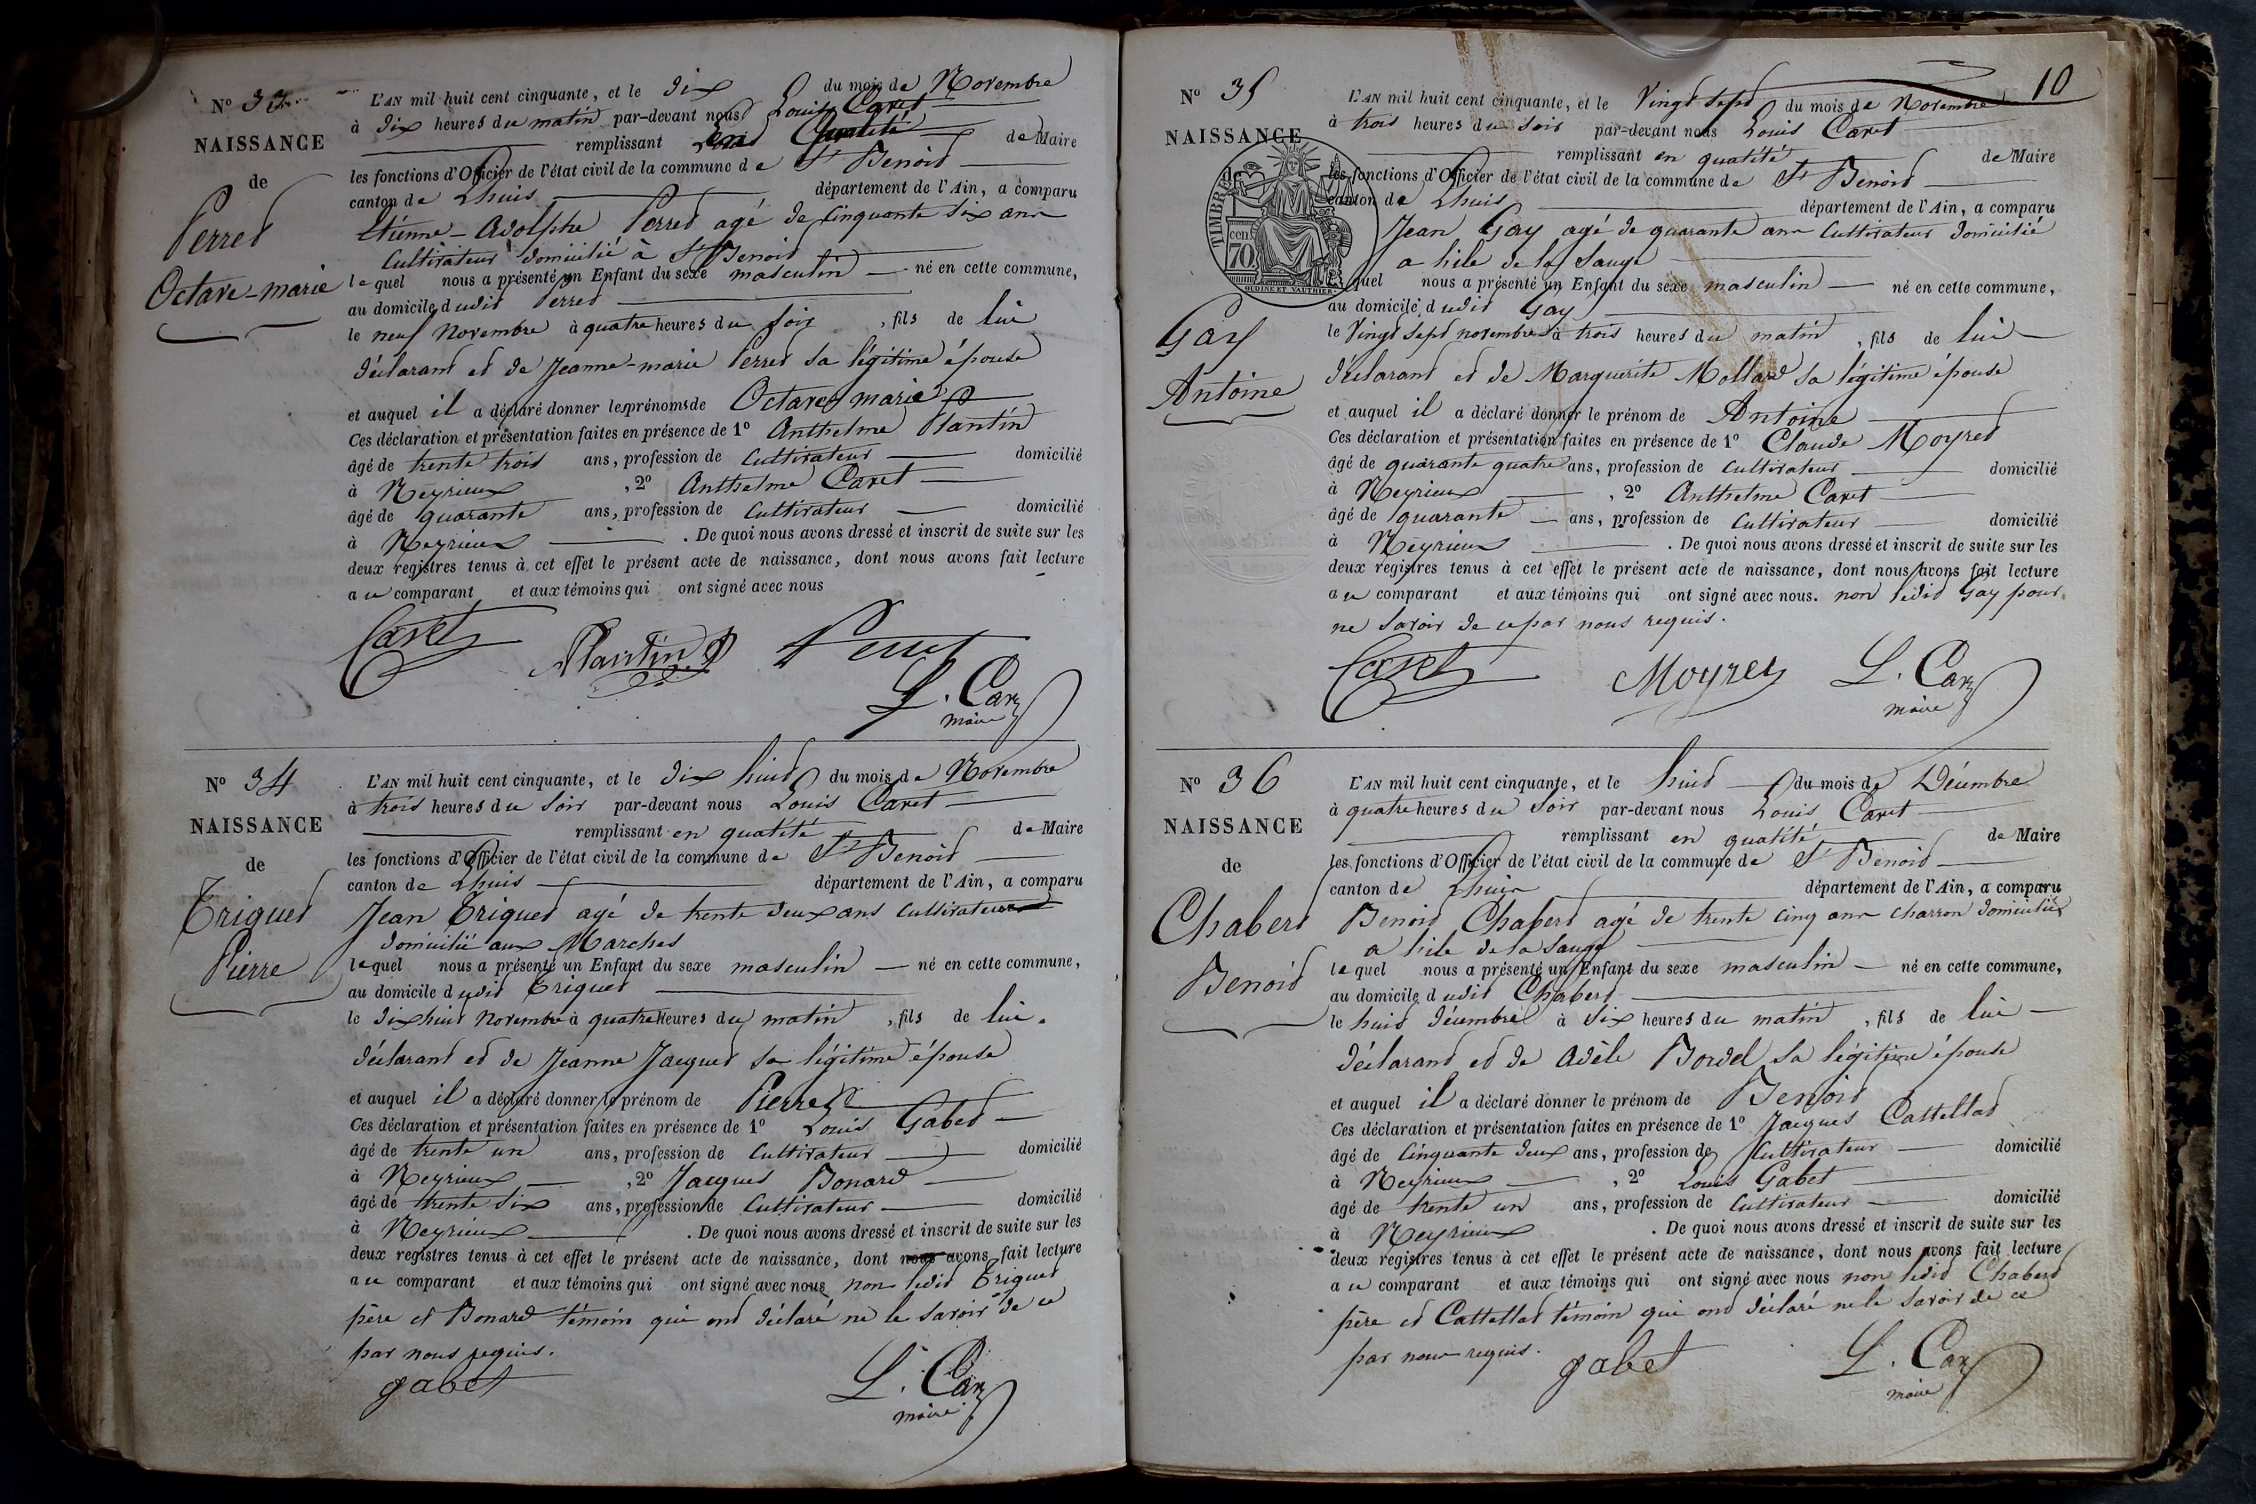 N° 33
NAISSANCE
de
Perret
Octave-marie
L'AN mil huit cent cinquante, et le dix du mois de Novembre
à dix heures du matin par-devant nous Louis Caret
remplissant en qualité de Maire
les fonctions d'Officier de l'état civil de la commune de St Benoit
canton de Lhuis département de l'Ain, a comparu
Etienne-Adolphe Perret agé de cinquante six ans
cultivateur domicilié à St Benoit
lequel nous a présenté un Enfant du sexe masculin né en cette commune,
au domicile dudit Perret
le neuf Novembre à quatre heures du soir, fils de lui
déclarant et de Jeanne-marie Perret sa légitime épouse
et auquel il a déclaré donner les prénoms de Octave marie
Ces déclaration et présentation faites en présence de 1° Anthelme Plantin
âgé de trente trois ans, profession de cultivateur domicilié
à Neyrieux, 2° Anthelme Caret
âgé de quarante ans, profession de cultivateur domicilié
à Neyrieux. De quoi nous avons dressé et inscrit de suite sur les
deux registres tenus à cet effet le présent acte de naissance, dont nous avons fait lecture
au comparant et aux témoins qui ont signé avec nous
Caret Plantin Perret
L. Caret
maire
N° 34
NAISSANCE
de
Triquet
Pierre
L'AN mil huit cent cinquante, et le dix huit du mois de Novembre
à trois heures du soir par-devant nous Louis Caret
remplissant en qualité de Maire
les fonctions d'Officier de l'état civil de la commune de St Benoit
canton de Lhuis département de l'Ain, a comparu
Jean Triquet agé de trente deux ans cultivateur
domicilié aux Marches
lequel nous a présenté un Enfant du sexe masculin né en cette commune,
au domicile dudit Triquet
le dix huit Novembre à quatre Heures du matin, fils de lui.
déclarant et de Jeanne Jacquet sa légitime épouse
et auquel il a déclaré donner le prénom de Pierre
Ces déclaration et présentation faites en présence de 1° Louis Gabet
âgé de trente un ans, profession de cultivateur domicilié
à Neyrieux, 2° Jacques Bonard
âgé de trente six ans, profession de cultivateur domicilié
à Neyrieux. De quoi nous avons dressé et inscrit de suite sur les
deux registres tenus à cet effet le présent acte de naissance, dont nous avons fait lecture
au comparant et aux témoins qui ont signé avec nous non ledit Triquet
père et Bonard témoin qui ont déclaré ne le savoir de ce
par nous requis.
gabet
L. Caret
maire
10
N° 35
NAISSANCE
de
TIMBRE
cen
70
OUDINE ET VAUTHIER
Gay
Antoine
L'AN mil huit cent cinquante, et le Vingt sept du mois de Novembre
à trois heures du soir par-devant nous Louis Caret
remplissant en qualité de Maire
les fonctions d'Officier de l'état civil de la commune de St Benoit
canton de Lhuis département de l'Ain, a comparu
Jean Gay agé de quarante ans cultivateur domicilié
a l'iile de la Sauge
lequel nous a présenté un Enfant du sexe masculin né en cette commune,
au domicile dudit Gay
le Vingt sept novembre à trois heures du matin, fils de lui
déclarant et de Marguerite Mollard sa légitime épouse
et auquel il a déclaré donner le prénom de Antoine
Ces déclaration et présentation faites en présence de 1° Claude Moyret
âgé de quarante quatre ans, profession de cultivateur domicilié
à Neyrieux, 2° Anthelme Caret
âgé de quarante ans, profession de cultivateur domicilié
à Neyrieux. De quoi nous avons dressé et inscrit de suite sur les
deux registres tenus à cet effet le présent acte de naissance, dont nous avons fait lecture
au comparant et aux témoins qui ont signé avec nous. non ledit Gay pour
ne savoir de ce par nous requis.
Caret Moyret L. Caret
maire
N° 36
NAISSANCE
de
Chabert
Benoit
L'AN mil huit cent cinquante, et le huit du mois de Décembre
à quatre heures du soir par-devant nous Louis Caret
remplissant en qualité de Maire
les fonctions d'Officier de l'état civil de la commune de St Benoit
canton de Lhuis département de l'Ain, a comparu
Benoit Chabert agé de trente cinq ans charron domicilié
a l'iile de la Sauge
lequel nous a présenté un Enfant du sexe masculin né en cette commune,
au domicile dudit Chabert
le huit décembre à six heures du matin, fils de lui
déclarant et de Adèle Bordel sa légitime épouse
et auquel il a déclaré donner le prénom de Benoit
Ces déclaration et présentation faites en présence de 1° Jacques Cattellad
âgé de cinquante deux ans, profession de cultivateur domicilié
à Neyrieux, 2° Louis Gabet
âgé de trente un ans, profession de cultivateur domicilié
à Neyrieux. De quoi nous avons dressé et inscrit de suite sur les
deux registres tenus à cet effet le présent acte de naissance, dont nous avons fait lecture
au comparant et aux témoins qui ont signé avec nous non ledit Chabert
père et Cattellad témoin qui ont déclaré ne le savoir de ce
par nous requis.
gabet L. Caret
maire